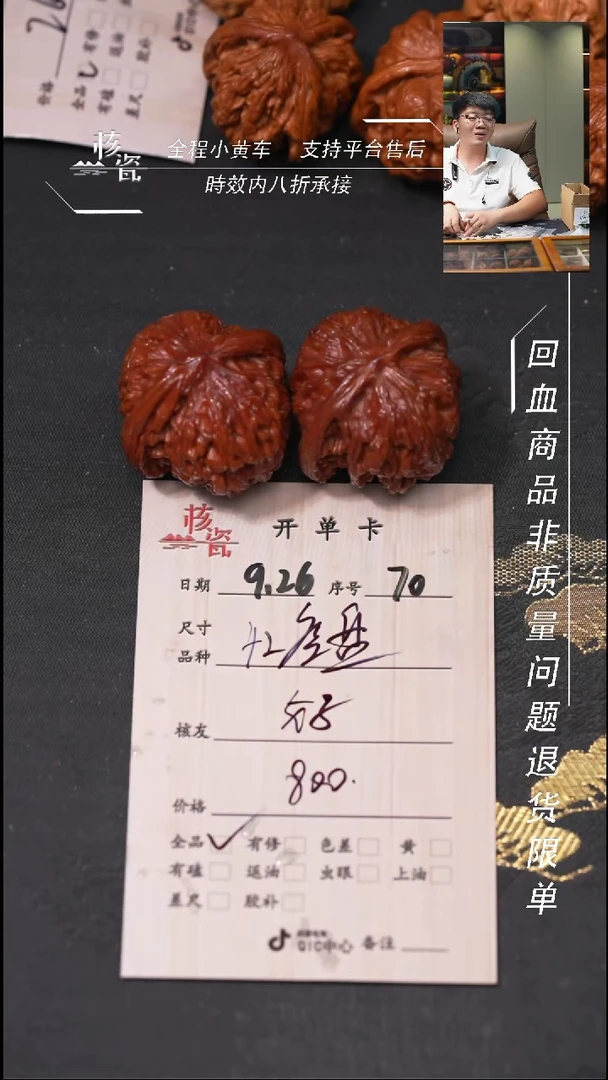 价格
全品 有修
有磕 返油
差尺 胶补
核瓷
全程小黄车 支持平台售后
時效内八折承接
回血商品非质量问题退货限单
核瓷 开单卡
日期 9.26 序号 70
尺寸
品种 42
核友
价格 800.
全品 ✓ 有修 色差 黄
有磕 返油 虫眼 上油
差尺 胶补
QIC中心 备注